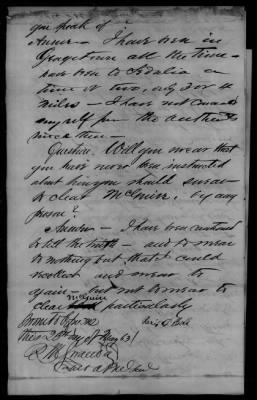 you speak of?
Answer — I have been in
Georgetown all the time —
have been to Sedalia a
time or two, only 3 or 4
miles — I have not concealed
myself from the authorities
since then —
Question. Will you swear that
you have never been instructed
about how you should swear
to clear McGuire, by any
person?
Answer — I have been cautioned
to tell the truth — and to swear
to nothing but what I could
recollect and swear to
again — but not to swear to
clear McGuire particularly
Sworn to before me
this 20th day of May 63